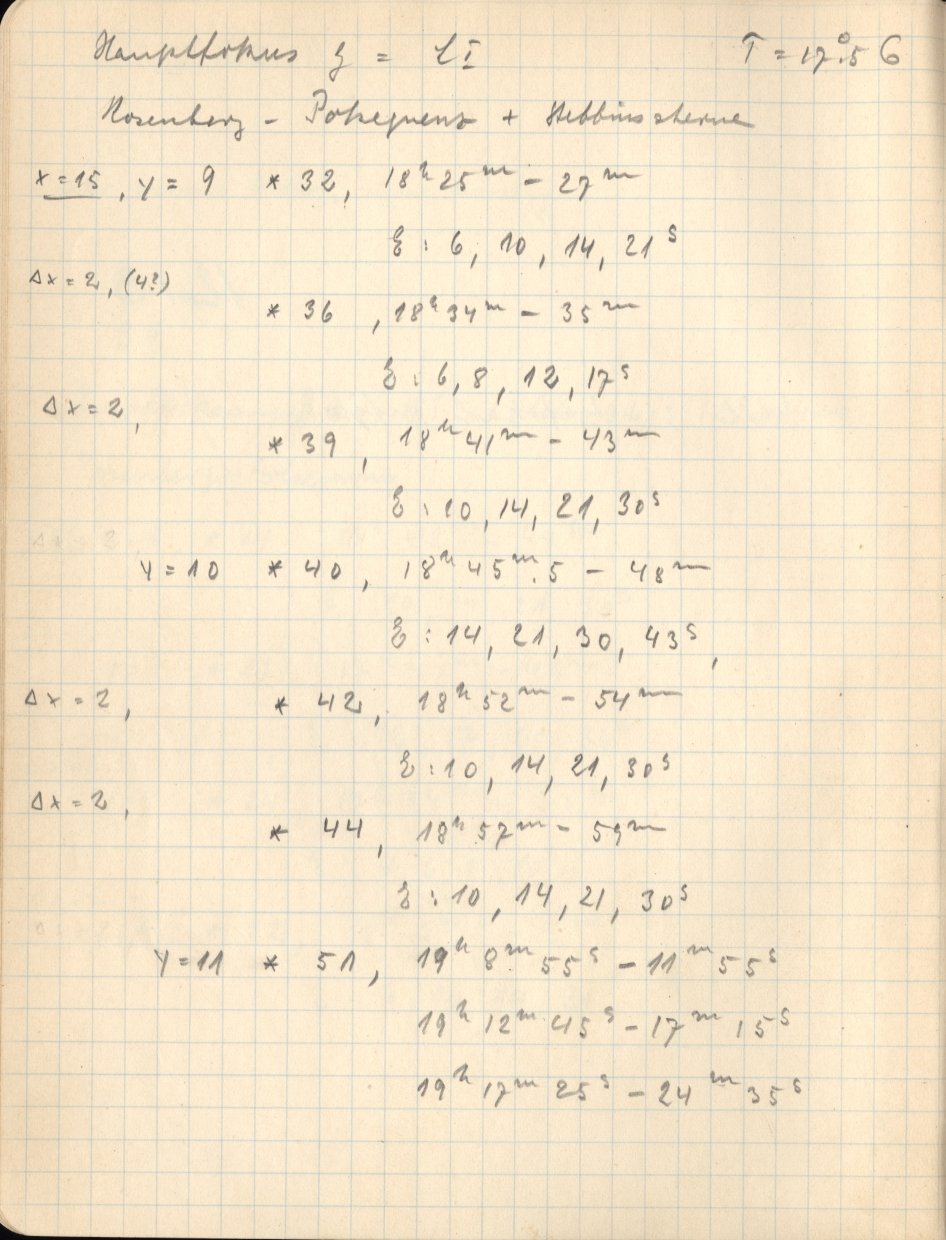 Hauptfokus
T = 17°.5 C
Rosenberg - Polsequenz + Stebbinssterne
x = 15, y = 9 * 32, 18ʰ 25ᵐ - 27ᵐ
ξ : 6, 10, 14, 21ˢ
Δx = 2, (4?)
* 36, 18ʰ 34ᵐ - 35ᵐ
ξ : 6, 8, 12, 17ˢ
Δx = 2,
* 39, 18ʰ 41ᵐ - 43ᵐ
ξ : 10, 14, 21, 30ˢ
y = 10 * 40, 18ʰ 45ᵐ.5 - 48ᵐ
ξ : 14, 21, 30, 43ˢ,
Δx = 2, * 42, 18ʰ 52ᵐ - 54ᵐ
ξ : 10, 14, 21, 30ˢ
Δx = 2,
* 44, 18ʰ 57ᵐ - 59ᵐ
ξ : 10, 14, 21, 30ˢ
y = 11 * 51, 19ʰ 8ᵐ 55ˢ - 11ᵐ 55ˢ
19ʰ 12ᵐ 45ˢ - 17ᵐ 15ˢ
19ʰ 17ᵐ 25ˢ - 24ᵐ 35ˢ